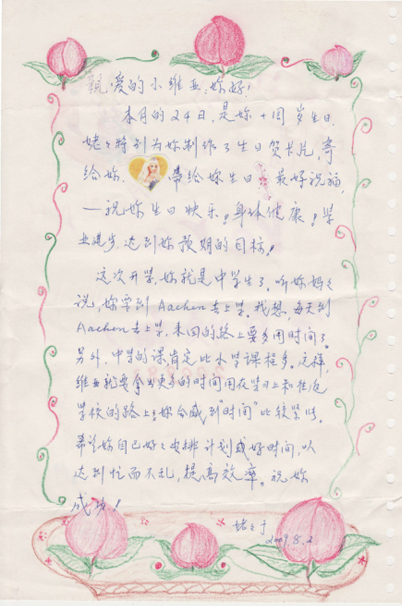 亲爱的小维亚，妳好！
本月的24日，是妳十周岁生日，
姥姥特别为妳制作了生日贺卡片，寄
给妳。带给妳生日最好祝福，
—祝妳生日快乐！身体健康！学
业进步达到妳预期的目标！
这次开学妳就是中学生了，听妳妈妈
说，妳要到Aachen去上学。我想，每天到
Aachen去上学，来回的路上要多用时间了。
另外，中学的课肯定比小学课程多。这样，
维亚就要拿出更多的时间用在学习上和往返
学校的路上；妳会感到“时间”比较紧吧。
希望妳自己好好安排计划或好时间，以
达到忙而不乱，提高效率。祝妳
成功！
姥姥于
2009.8.2